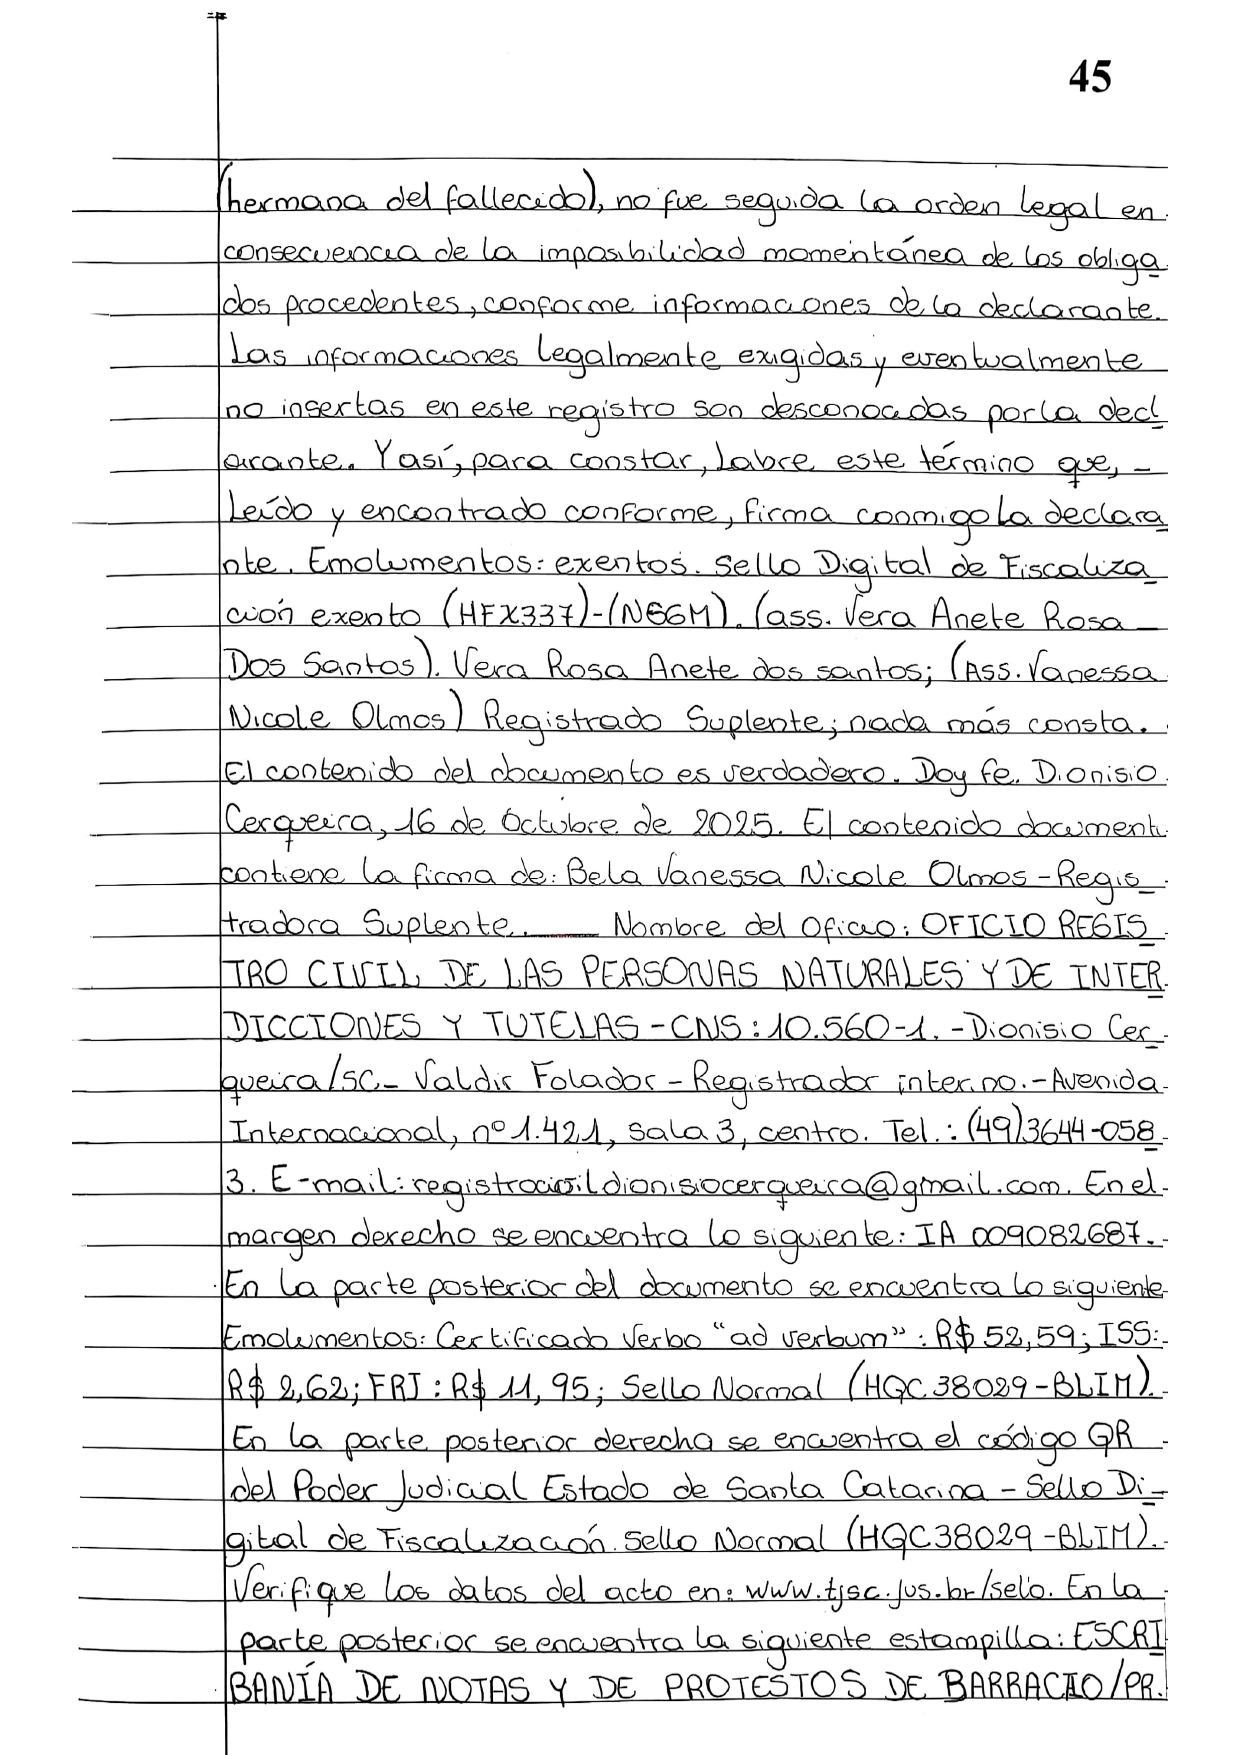 45
(hermana del fallecido), no fue seguida la orden legal en
consecuencia de la imposibilidad momentánea de los obliga
dos procedentes, conforme informaciones de la declarante.
Las informaciones legalmente exigidas y eventualmente
no insertas en este registro son desconocidas por la decl
arante. Y así, para constar, Labre este término que, -
Leído y encontrado conforme, firma conmigo La declara
nte. Emolumentos: exentos. Sello Digital de Fiscaliza
ción exento (HFX337)-(NGGM). (ass. Vera Anete Rosa
Dos Santos). Vera Rosa Anete dos santos; (Ass. Vanessa
Nicole Olmos) Registrado Suplente; nada más consta.
El contenido del documento es verdadero. Doy fe. Dionisio
Cerqueira, 16 de Octubre de 2025. El contenido document
contiene la firma de: Bela Vanessa Nicole Olmos - Regis
tradora Suplente. Nombre del Oficio: OFICIO REGIS
TRO CIVIL DE LAS PERSONAS NATURALES Y DE INTER
DICCIONES Y TUTELAS - CNS: 10.560-1. - Dionisio Cer
queira/SC- Valdir Folador - Registrador interino. - Avenida
Internacional, nº 1.421, Sala 3, centro. Tel.: (49)3644-058
3. E-mail: registrocivildionisiocerqueira@gmail.com. En el
margen derecho se encuentra lo siguiente: IA 009082687.
En la parte posterior del documento se encuentra lo siguiente
Emolumentos: Certificado Verbo "ad verbum": R$ 52,59; ISS:
R$ 2,62; FRJ: R$ 11,95; Sello Normal (HQC38029-BLIM).
En la parte posterior derecha se encuentra el código QR
del Poder Judicial Estado de Santa Catarina - Sello Di-
gital de Fiscalización. Sello Normal (HQC38029-BLIM).
Verifique los datos del acto en: www.tjsc.jus.br/selo. En la
parte posterior se encuentra la siguiente estampilla: ESCRI
BANÍA DE NOTAS Y DE PROTESTOS DE BARRACAO/PR.